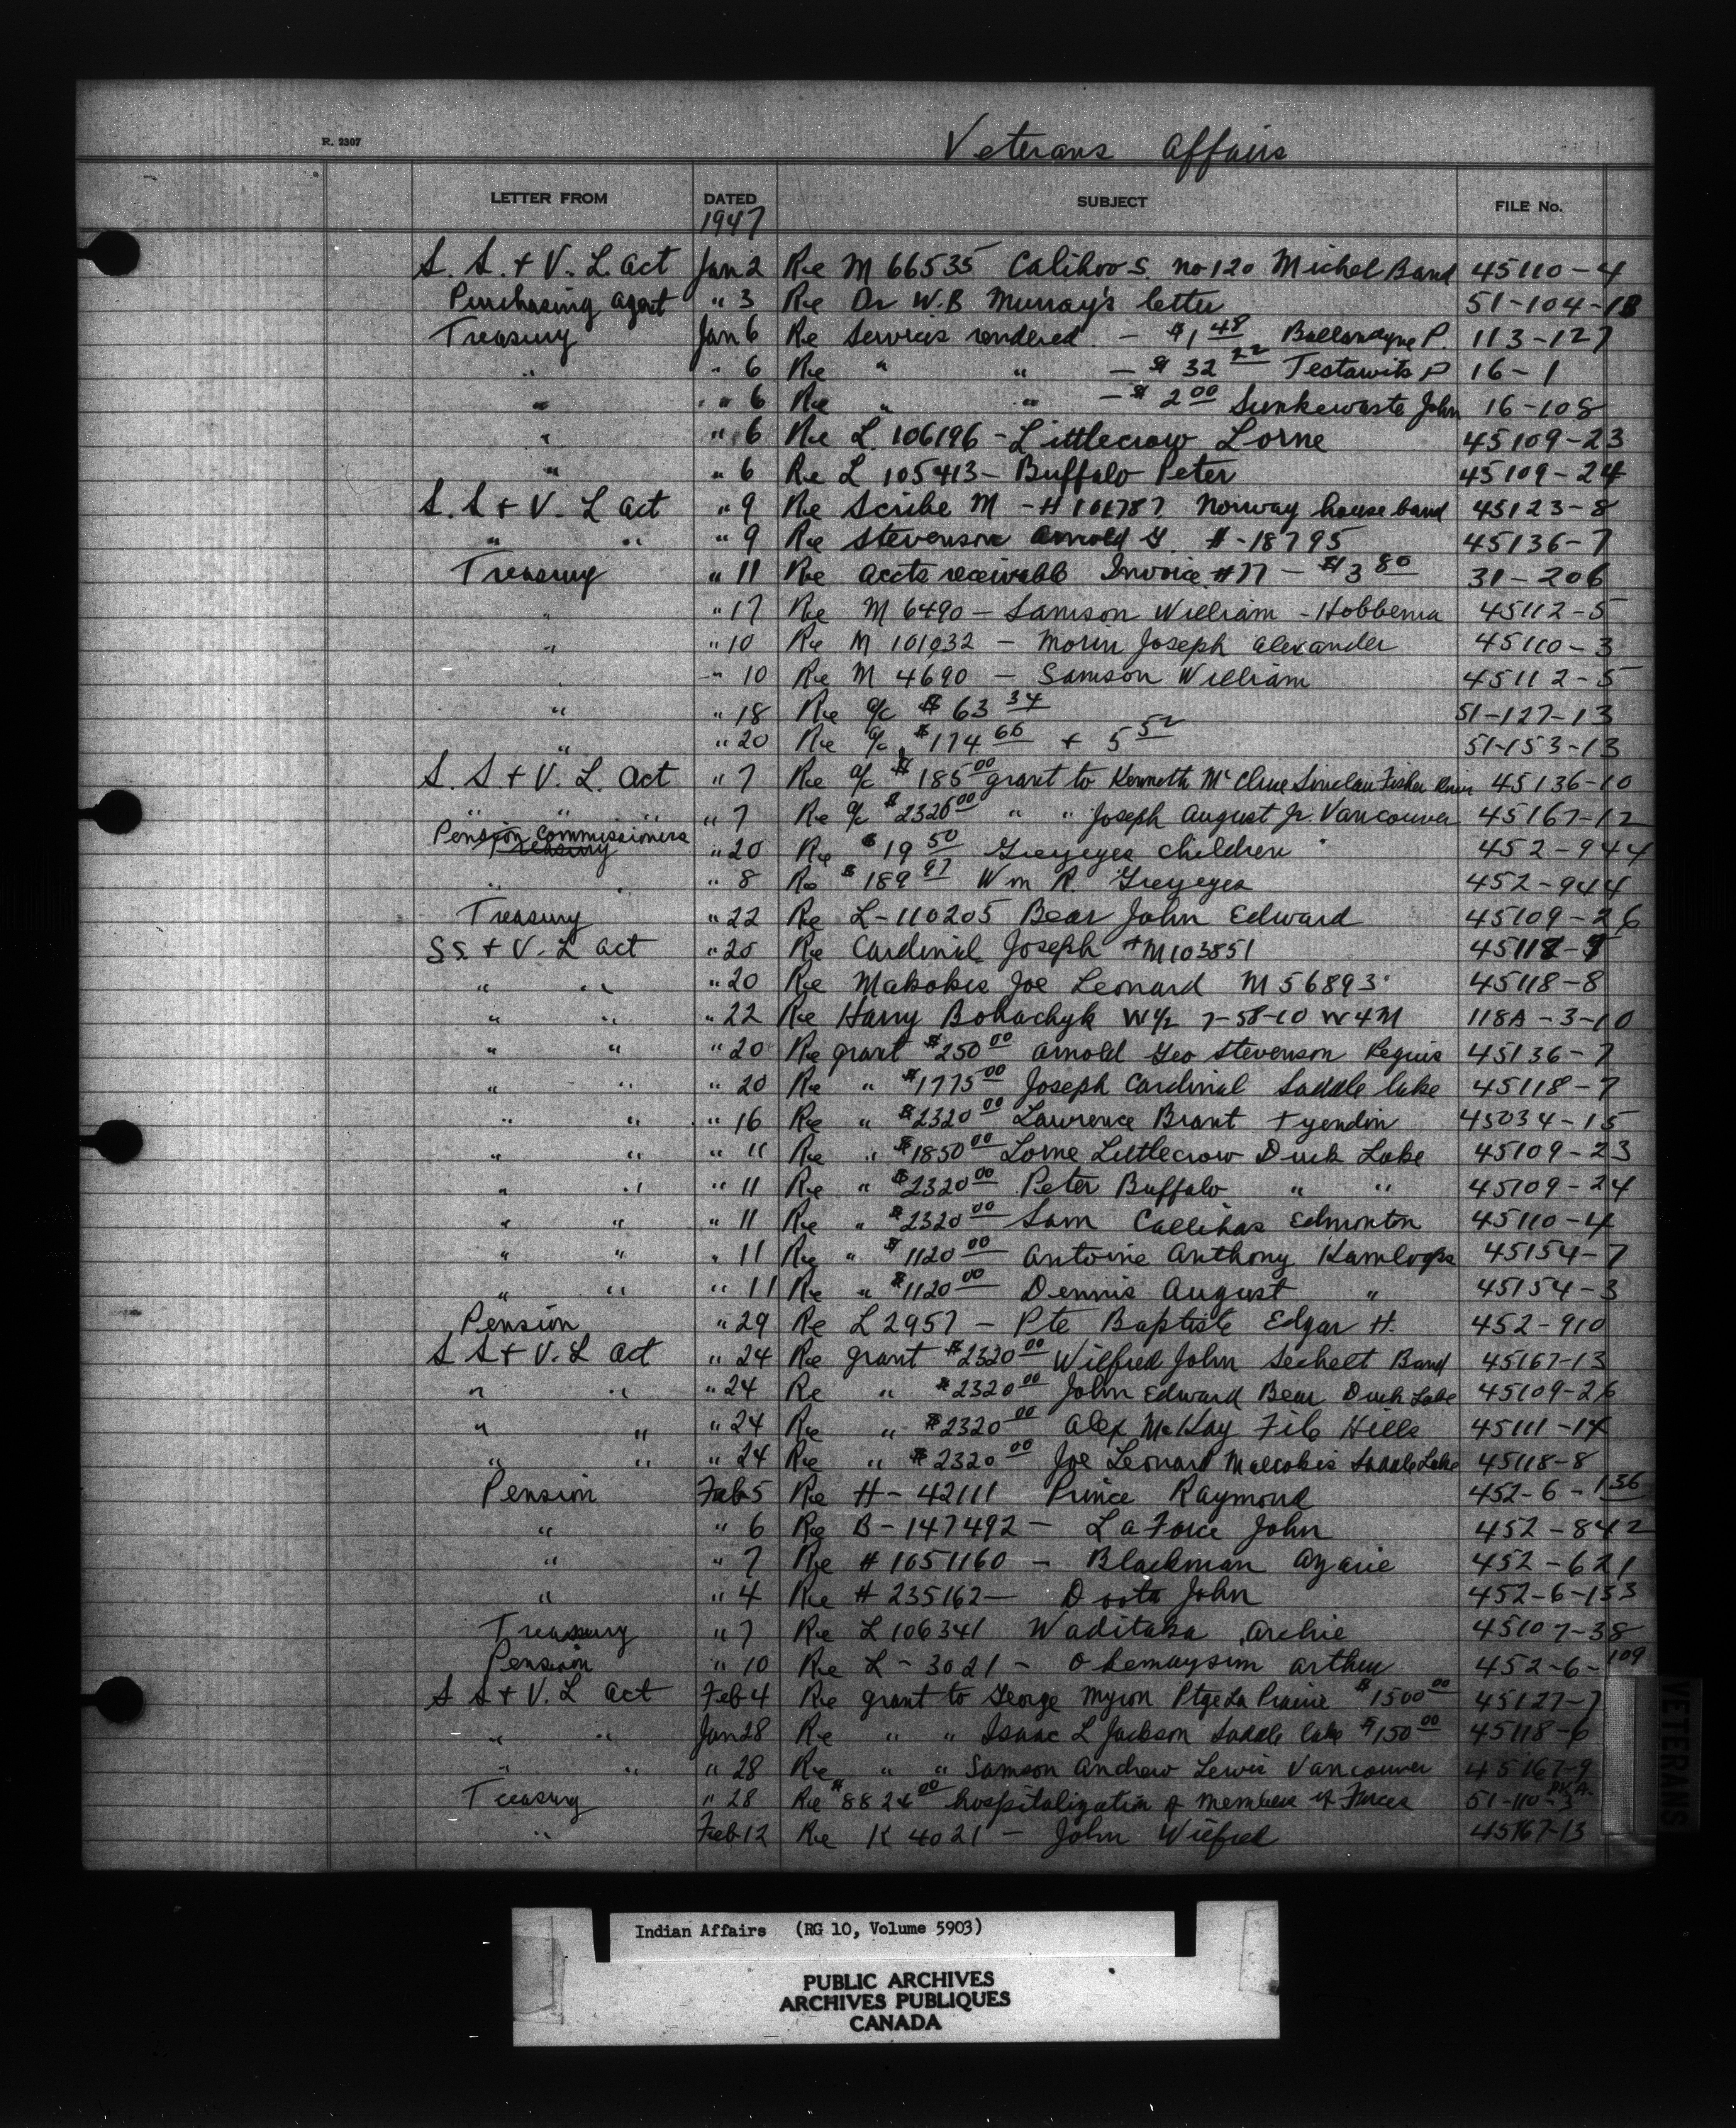 R. 2307
Veterans Affairs
LETTER FROM DATED SUBJECT FILE No.
1947
S. S. + V. L. Act Jan 2 Re M 66535 Calihoo S. no 120 Michel Band 45110-4
Purchasing Agent " 3 Re Dr W.B Murray's letter 51-104-1B
Treasury Jan 6 Re Services rendered - $1 48 Ballandyne P. 113-127
" " 6 Re " " - $ 32 22 Testawits P 16-1
" " 6 Re " " - $ 2 00 Sunkewaste John 16-108
" " 6 Re L 106196 - Littlecrow Lorne 45109-23
" " 6 Re L 105413 - Buffalo Peter 45109-24
S. S + V. L Act " 9 Re Scribe M - H 101787 Norway house band 45123-8
" " " 9 Re Stevenson Arnold G. H-18795 45136-7
Treasury " 11 Re Accts receivable Invoice #77 - $3 80 31-206
" " 17 Re M 6490 - Samson William - Hobbema 45112-5
" " 10 Re M 101032 - Morin Joseph Alexander 45110-3
" " 10 Re M 4690 - Samson William 45112-5
" " 18 Re a/c $ 63 34 51-127-13
" " 20 Re a/c $174 66 + 5 52 51-153-13
S. S. + V. L. Act " 7 Re a/c $ 185 00 grant to Kenneth McClure Sinclair Fisher River 45136-10
" " " " 7 Re a/c $2320 00 " " Joseph August Jr. Vancouver 45167-12
Pension Commissioners
Treasury " 20 Re $19 50 Greyeyes children 452-944
" " " 8 Re $ 189 97 Wm R. Greyeyes 452-944
Treasury " 22 Re L-110205 Bear John Edward 45109-26
S S. + V. L Act " 20 Re Cardinal Joseph #M103851 45118-7
" " " 20 Re Makokis Joe Leonard M 56893 45118-8
" " " 22 Re Harry Bohachyk W½ 7-58-10 W4M 118A-3-10
" " " 20 Re grant $250 00 Arnold Geo Stevenson Peguis 45136-7
" " " 20 Re " $1775 00 Joseph Cardinal Saddle lake 45118-7
" " " 16 Re " $2320 00 Lawrence Brant Tyendin 45034-15
" " " 11 Re " $1850 00 Lorne Littlecrow Duck Lake 45109-23
" " " 11 Re " $2320 00 Peter Buffalo " " 45109-24
" " " 11 Re " $2320 00 Sam Callihas Edmonton 45110-4
" " " 11 Re " $1120 00 Antoine Anthony Kamloops 45154-7
" " " 11 Re " $1120 00 Dennis August " 45154-3
Pension " 29 Re L 2957 - Pte Baptiste Edgar H. 452-910
S S + V. L Act " 24 Re grant $2320 00 Wilfred John Sechelt Band 45167-13
" " " 24 Re " $2320 00 John Edward Bear Duck Lake 45109-26
" " " 24 Re " $2320 00 Alex McKay File Hills 45111-14
" " " 24 Re " $2320 00 Joe Leonard Makokis Saddle Lake 45118-8
Pension Feb 5 Re H-42111 Prince Raymond 452-6-136
" " 6 Re B-147492 - LaForce John 452-842
" " 7 Re # 1051160 - Blackman Azarie 452-621
" " 4 Re # 235162 - Doota John 452-6-153
Treasury " 7 Re L 106341 Waditaka Archie 45107-38
Pension " 10 Re L-3021 - Okemaysim Arthur 452-6-109
S S + V. L Act Feb 4 Re grant to George Myron Ptge La Prairie $1500 00 45127-7
" " Jan 28 Re " " Isaac L Jackson Saddle lake $150 00 45118-6
" " " 28 Re " " Samson Andrew Lewis Vancouver 45167-9
Treasury " 28 Re $8826 00 hospitalization of members of Forces 51-110-3
" Feb 12 Re K 4021 - John Wilfred 45167-13
VETERANS
Indian Affairs (RG 10, Volume 5903)
PUBLIC ARCHIVES
ARCHIVES PUBLIQUES
CANADA